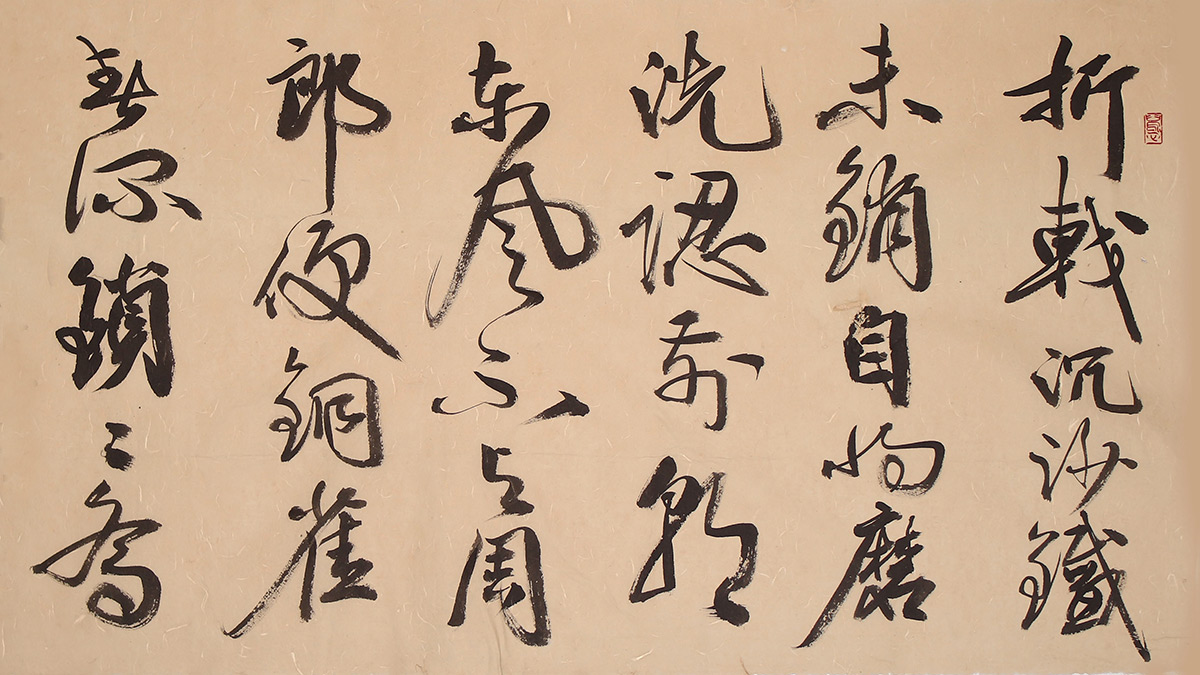 折戟沉沙鐵
未銷自将磨
洗認前朝
东風不与周
郎便銅雀
春深鎖二喬